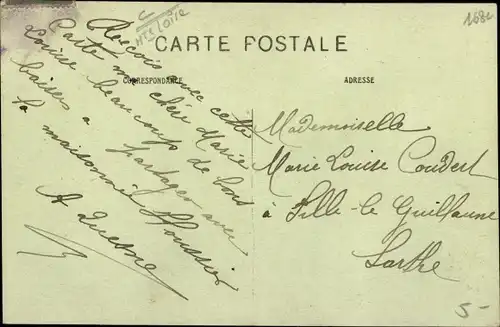 C
Hte Loire
168
CARTE POSTALE
CORRESPONDANCE
ADRESSE
Reçois avec cette
Carte ma chère Marie
Louise beaucoup de bons
baisers a partager avec
la maisonnée
A Duesne
Mademoiselle
Marie Louise Coudert
à Fille-le Guillaume
Sarthe
5-